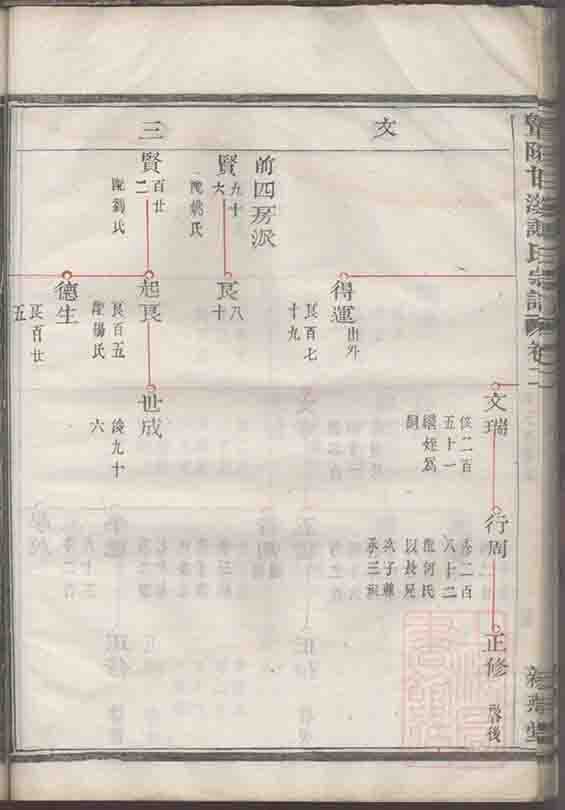 文
三
文瑞
五十一
繼姪爲
嗣
行周
八十二
配何氏
以長兄
次子兼
承三祧
正修
啓後
得運
出外
良百七
十九
前四房派
賢
九十
六
配姚氏
良
八
十
賢
百廿
二
配劉氏
起良
良百五
配楊氏
世成
後九十
六
德生
良百廿
五
氏宗譜
卷二